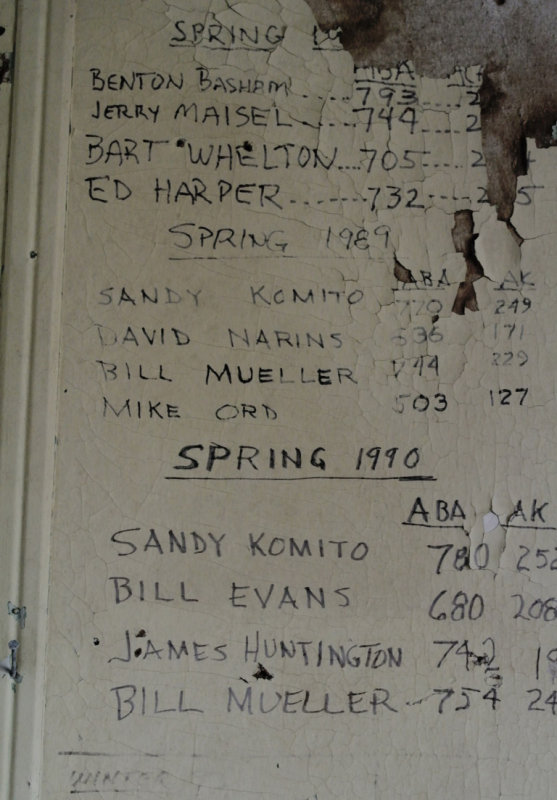 SPRING
ABA
BENTON BASHAM ..... 793 .... 2
JERRY MAISEL ..... 744 .... 2
BART WHELTON.... 705 .... 2
ED HARPER ------- 732 ---- 2 5
SPRING 1989
ABA AK
SANDY KOMITO 770 249
DAVID NARINS 636 171
BILL MUELLER 744 229
MIKE ORD 503 127
SPRING 1990
ABA AK
SANDY KOMITO 780 252
BILL EVANS 680 208
JAMES HUNTINGTON 742 19
BILL MUELLER -- 754 24
WINTER